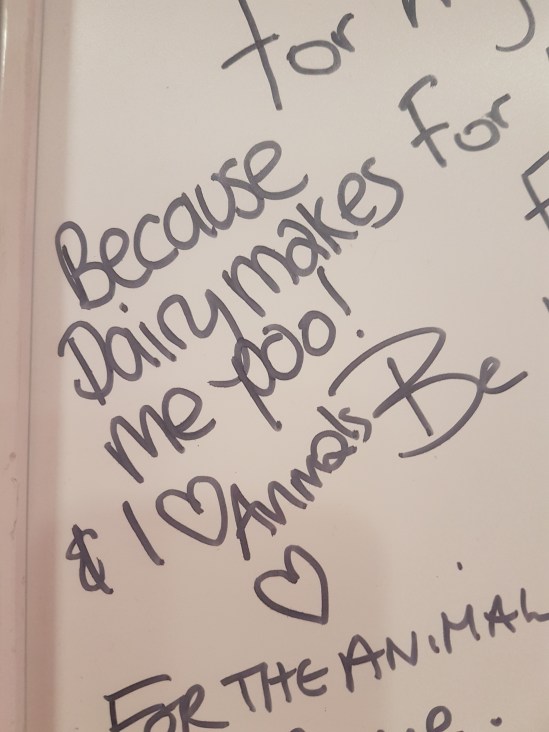 for my
For
Because
Dairy makes
me poo!
& I ♡ Animals
♡
Be
FOR THE ANIMAL